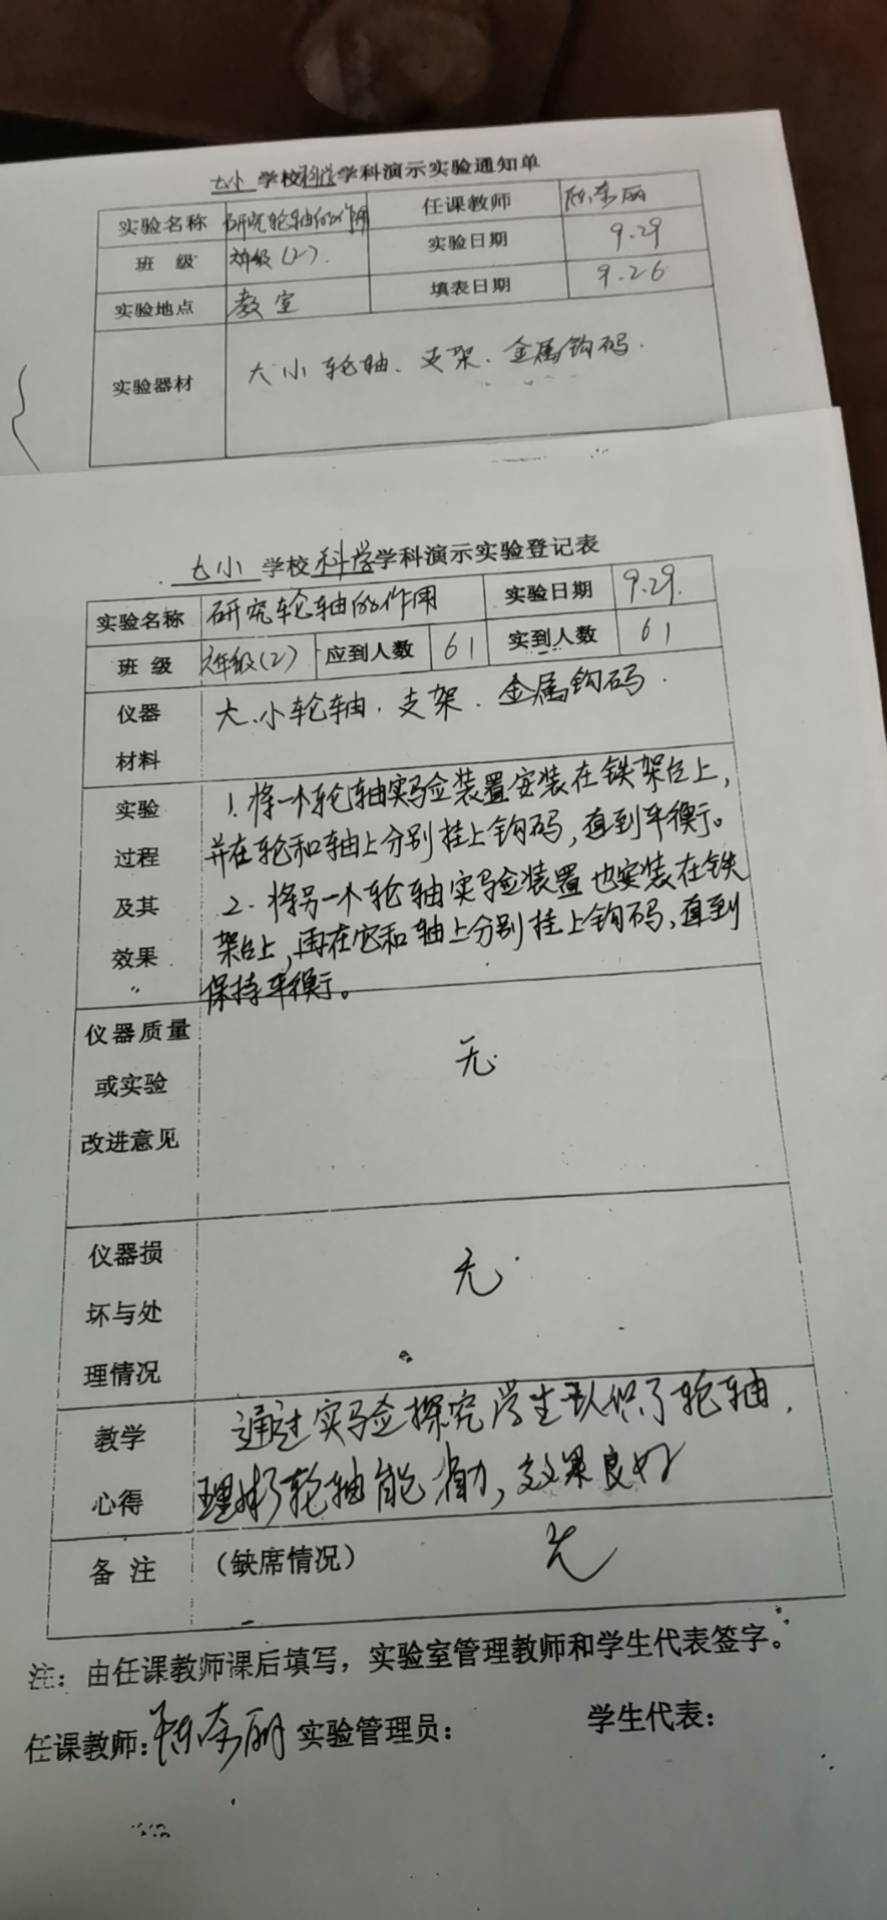 七小 学校科学学科演示实验通知单
实验名称 研究轮轴的作用 任课教师
班 级 六年级(2). 实验日期 9.29
实验地点 教室 填表日期 9.26
实验器材 大小轮轴、支架、金属钩码.
七小 学校科学学科演示实验登记表
实验名称 研究轮轴的作用 实验日期 9.29.
班 级 六年级(2) 应到人数 61 实到人数 61
仪器 大、小轮轴、支架、金属钩码.
材料
实验 1. 将一个轮轴实验装置安装在铁架台上,
过程 并在轮和轴上分别挂上钩码,直到平衡。
及其 2. 将另一个轮轴实验装置也安装在铁
效果 架台上,再在它和轴上分别挂上钩码,直到
保持平衡。
仪器质量
或实验 无.
改进意见
仪器损
坏与处 无.
理情况
教学 通过实验探究学生认识了轮轴,
心得 理解轮轴能省力,效果良好
备 注 (缺席情况) 无
注:由任课教师课后填写,实验室管理教师和学生代表签字。
任课教师: 实验管理员: 学生代表: